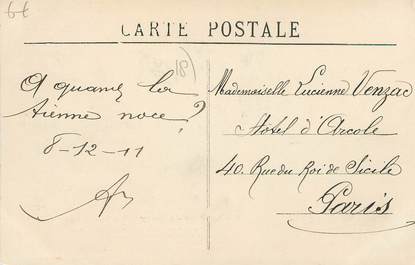 6€
CARTE POSTALE
(18)
A quand la
tienne noce?
8-12-11
Mademoiselle Lucienne Venzac
Hôtel d'Arcole
40. Rue du Roi de Sicile
Paris